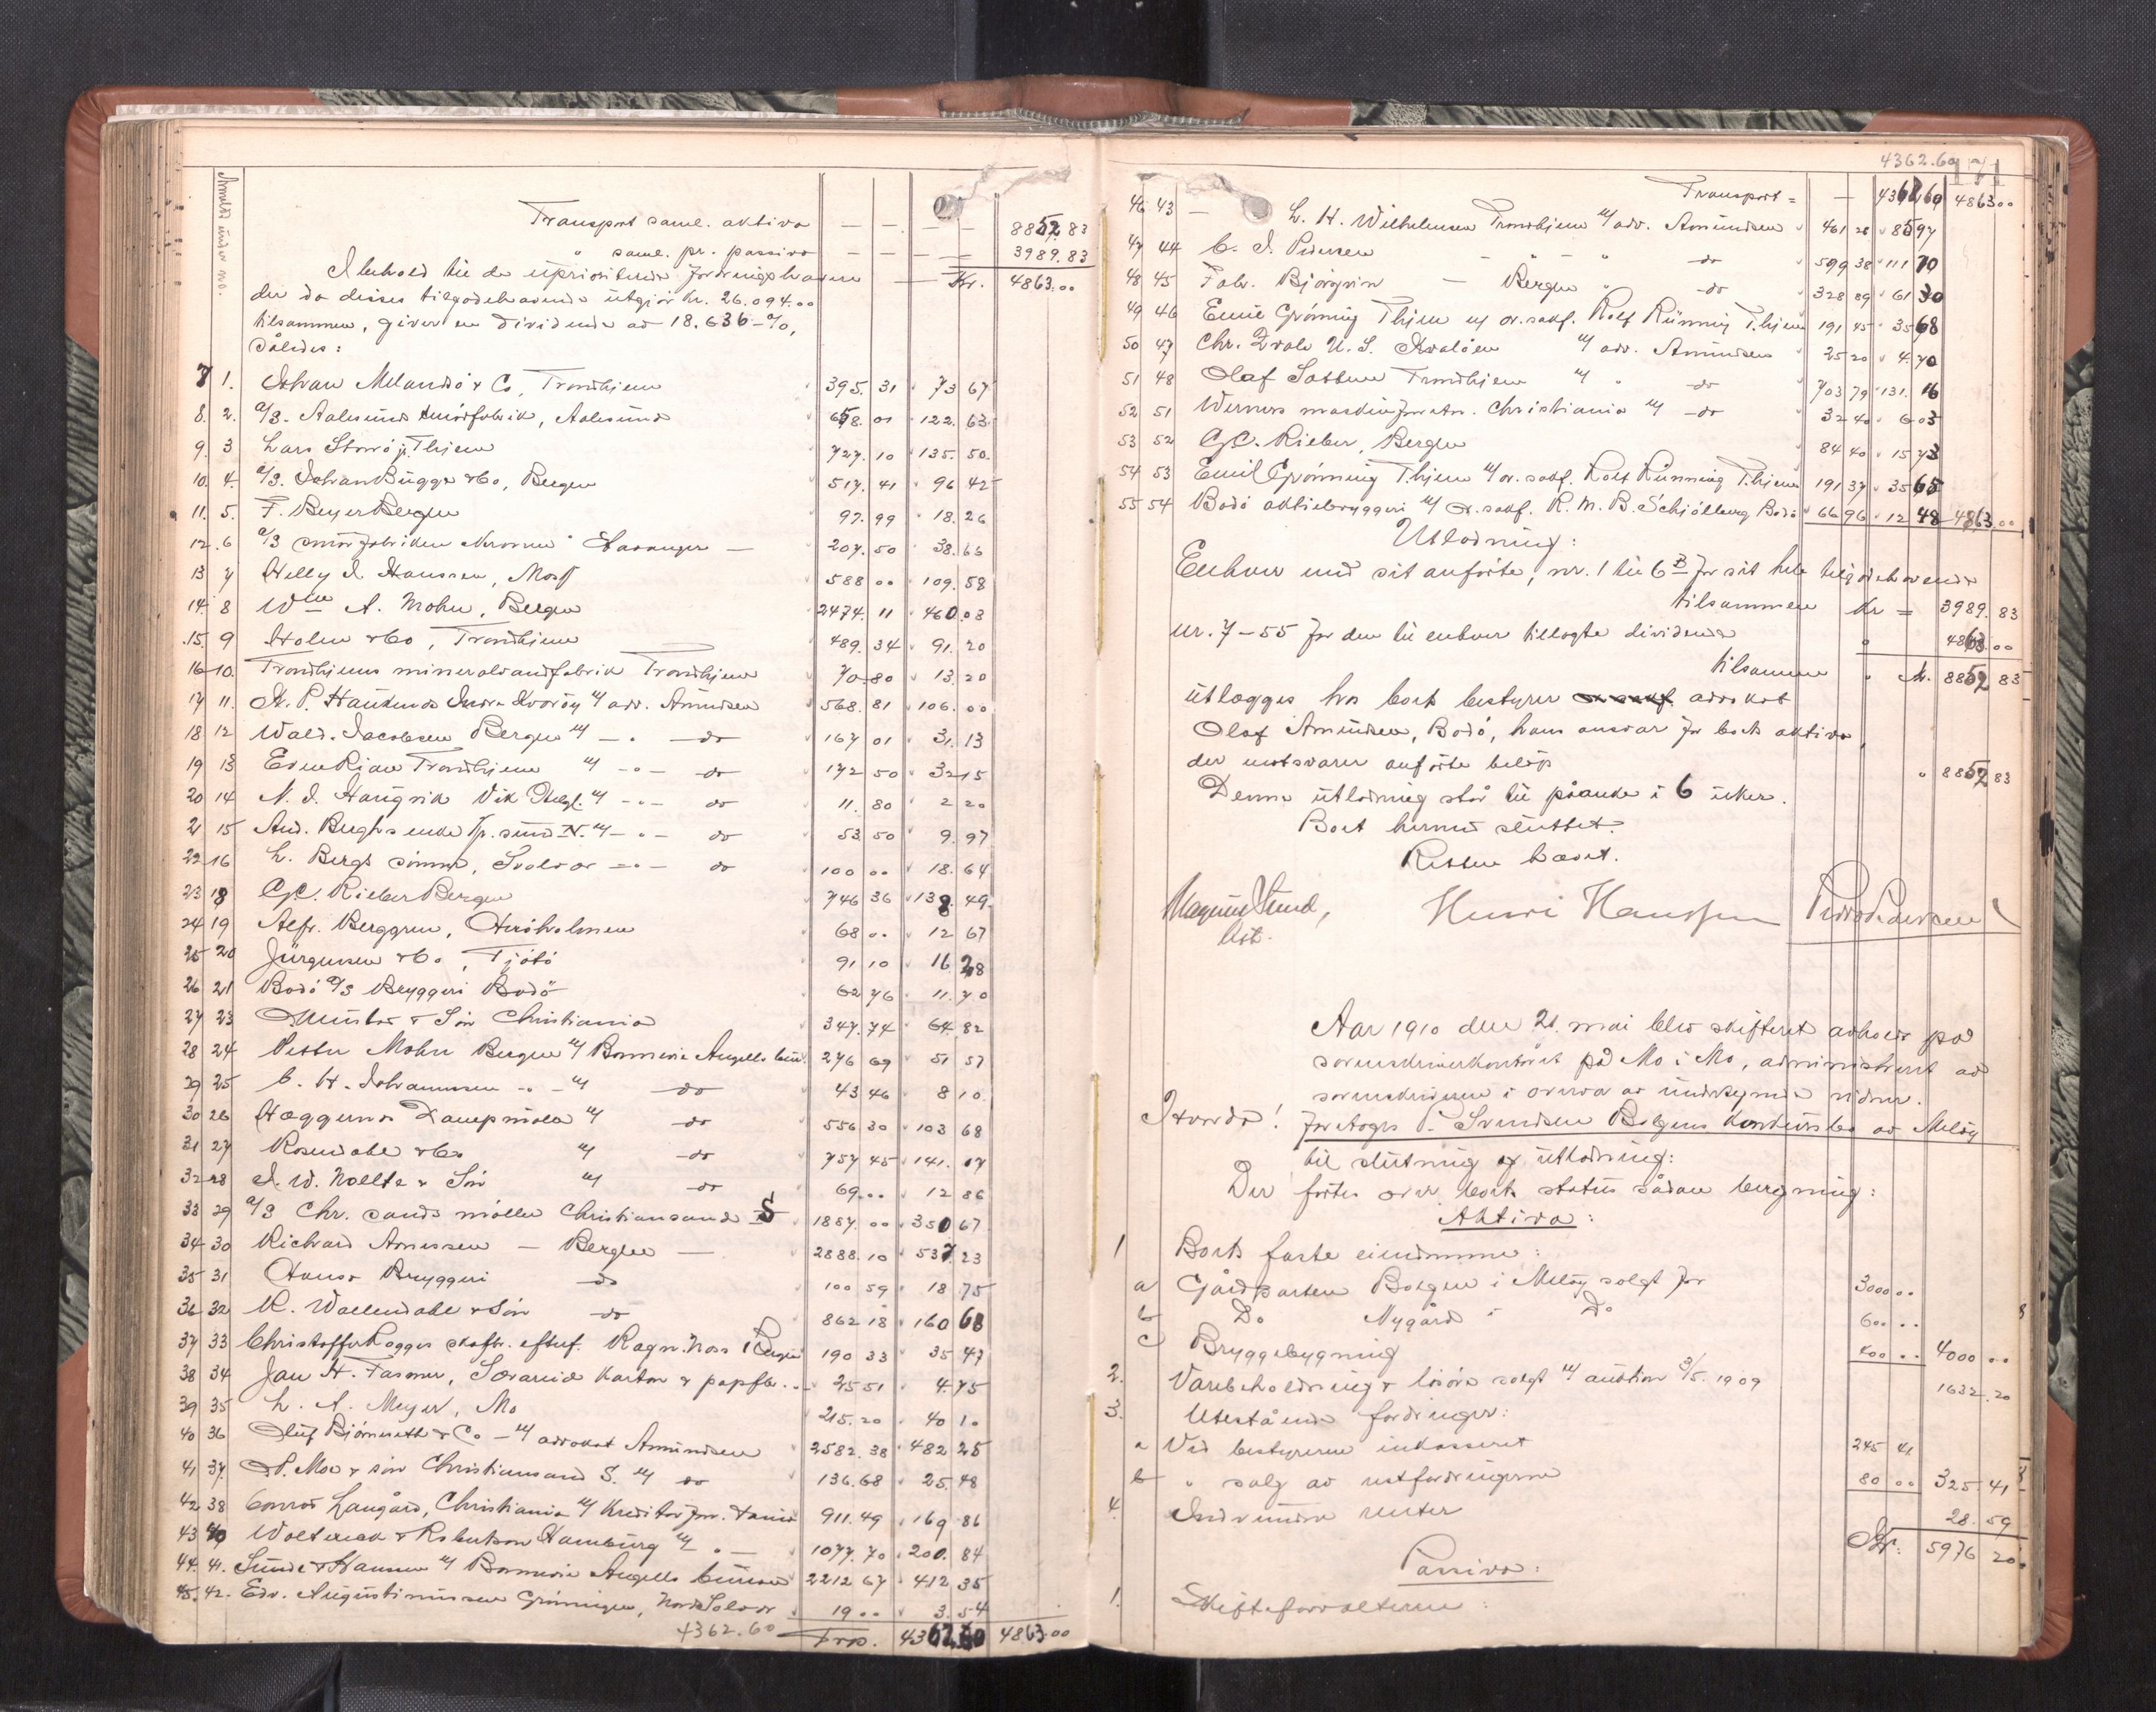 Anmeldt under no.
Transport saml. aktiva — — — — 8852 83
" saml. pr. passiva — — — — 3989.83
I henhold til de uprioriterede fordringshavere — Kr. 4863.00
der da disses tilgodehavende utgjør kr. 26.094.00
tilsammen, giver en dividende av 18.636 %,
således:
7 1. Johan & Co, Trondhjem 395.31 73 67
8. 2. A/S. Aalesunds smørfabrik, Aalesund 658.01 122.63
9. 3 Lars Thjem 727.10 135.50
10. 4. A/S. Johan Bügge & Co, Bergen 517.41 96 42
11. 5. F. Beyer Bergen 97.99 18.26
12. 6 A/S smørfabriken Stavanger — 207.50 38.66
13 7 Helly J. Hanssen, Moss 588 00 109.58
14 8 Wm A. Mohn, Bergen 2474.11 460.08
15 9 Holm & Co, Trondhjem 489.34 91.20
16 10. Trondhjems mineralvandfabrik Trondhjem 70.80 13.20
17 11. Indre Kvarøy v/ adv. Amundsen 568.81 106.00
18 12 Wald. Jacobsen Bergen v/ — do 167 01 31.13
19 13 Even Rian Trondhjem v/ — do 172 50 32 15
20 14 N. J. Haugvik Vik Helgl. v/ — do 11.80 2 20
21 15 And. Berghs enke Kr. sund N. v/ — do 53.50 9.97
22 16 L. Bergs sønner, Svolvær — do 100 00 18.64
23 18 G.C. Rieber Bergen 746 36 138.49
24 19 Alfr. Berggren, 68 00 12 67
25 20 Jürgensen & Co, Tjøtø 91 10 16 28
26 21 Bodø A/S Bryggeri Bodø 62 76 11.70
27 23 & Søn Christiania 347.74 64.82
28 24 Petter Mohn Bergen v/ Bonnevie Angells bureau 276 69 51 57
29 25 C. H. Johannessen — v/ do 43 46 8 10
30 26 Hæggernæs Dampmølle v/ do 556 30 103 68
31 27 Rosendahl & Co v/ do 757 45 141.17
32 28 J. W. & Søn v/ do 69.00 12 86
33 29 A/S Chr. sands møller Christianssand S 1887.00 350 67
34 30 Richard Amessen — Bergen — 2888.10 537.23
35 31 Hansa Bryggeri do 100 59 18 75
36 32 R. Wallendahl & Søn do 862 18 160 68
37 33 Christoffer eftuf. Ragn. Noss i Bergen 190 33 35 47
38 34 Jan H. Fasmer, karton & papfbr. 25 51 4.75
39 35 L. A. Meyer, Mo 215.20 40 10
40 36 Oluf Bjørneseth & Co — v/ advokat Amundsen 2582.38 482 25
41 37 P. Moe & søn Christianssand S. v/ do 136.68 25.48
42 38 Conrad Langård, Christiania v/ Kreditorfor. 911.49 169.86
43 40 Hamburg v/ — 1077.70 200.84
44. 41. Sunde & Hansen v/ Bonnevie Angells bureau 2212 67 412 35
45. 42. Edv. Augustinussen 19.00 3.54
4362.60 Trp. 4362.60 4863.00
4362.60
Transport = — 4362.60 4863.00
46 43 — L. H. Wilhelmsen Trondhjem v/ adv. Amundsen 461 28 85 97
47 44 C. J. Pedersen — do 599 38 111 70
48 45 Fabr. Bjørgvin — Bergen " do 328 89 61 30
49 46 Emil Grønning Thjem v/ o.r.sakf. Rolf Rünning T.hjem 191 45 35 68
50 47 v/ adv. Amundsen 25 20 4.70
51 48 Olaf Trondhjem v/ " do 703 79 131.16
52 51 Werners maskinforretn. Christiania v/ — do 32 40 6 03
53 52 G.C. Rieber, Bergen 84 40 15 73
54 53 Emil Grønning T.hjem v/ o.r.sakf. Rolf Rünning T.hjem 191 37 35 65
55 54 Bodø aktiebryggeri v/ o.r.sakf. R. M. B. Schjølberg Bodø 66 96 12 48 4863.00
Utlodning:
Enhver med sit anførte, nr. 1 til 6 B for sit hele tilgodehavende
tilsammen kr = 3989.83
nr. 7 – 55 for den til enhver tillagte dividende " 4863.00
tilsammen " kr. 8852 83
utlægges hos boets bestyrer advokat
Olaf Amundsen, Bodø, hans ansvar for boets aktiva,
der motsvarer anførte beløp " 8852 83
Denne utlodning står til påanke i 6 uker.
Boet hermed sluttet.
Retten hævet.
Magnus Sund, Henri Hanssen Peder Pedersen
Ast.
Aar 1910 den 21. mai blev skifteret avholdt på
sorenskriverkontoret på Mo i Mo, administrert av
sorenskriveren i overvær av undertegnede vidner.
Hvorda! Foretoges P. Svendsen Bolgens konkursbo av Meløy
til slutning og utlodning:
Der førtes over boets status sådan beregning:
Aktiva:
1 Boets faste eiendomme:
a Gårdparten Bolgen i Meløy solgt for 3000 ..
b Do Nygård i Do 600 ..
c Bryggebygning 400 .. 4000 ..
2. Varebeholdning & løsøre solgt v/ auktion 3/5. 1909 1632.20
3. Utestående fordringer:
a Ved bestyreren inkasseret 245 41
b " salg av restfordringerne 80 .. 325 41
4. Indvundne renter 28.59
Kr: 5976 20
Passiva:
1. Skifteforvalteren: